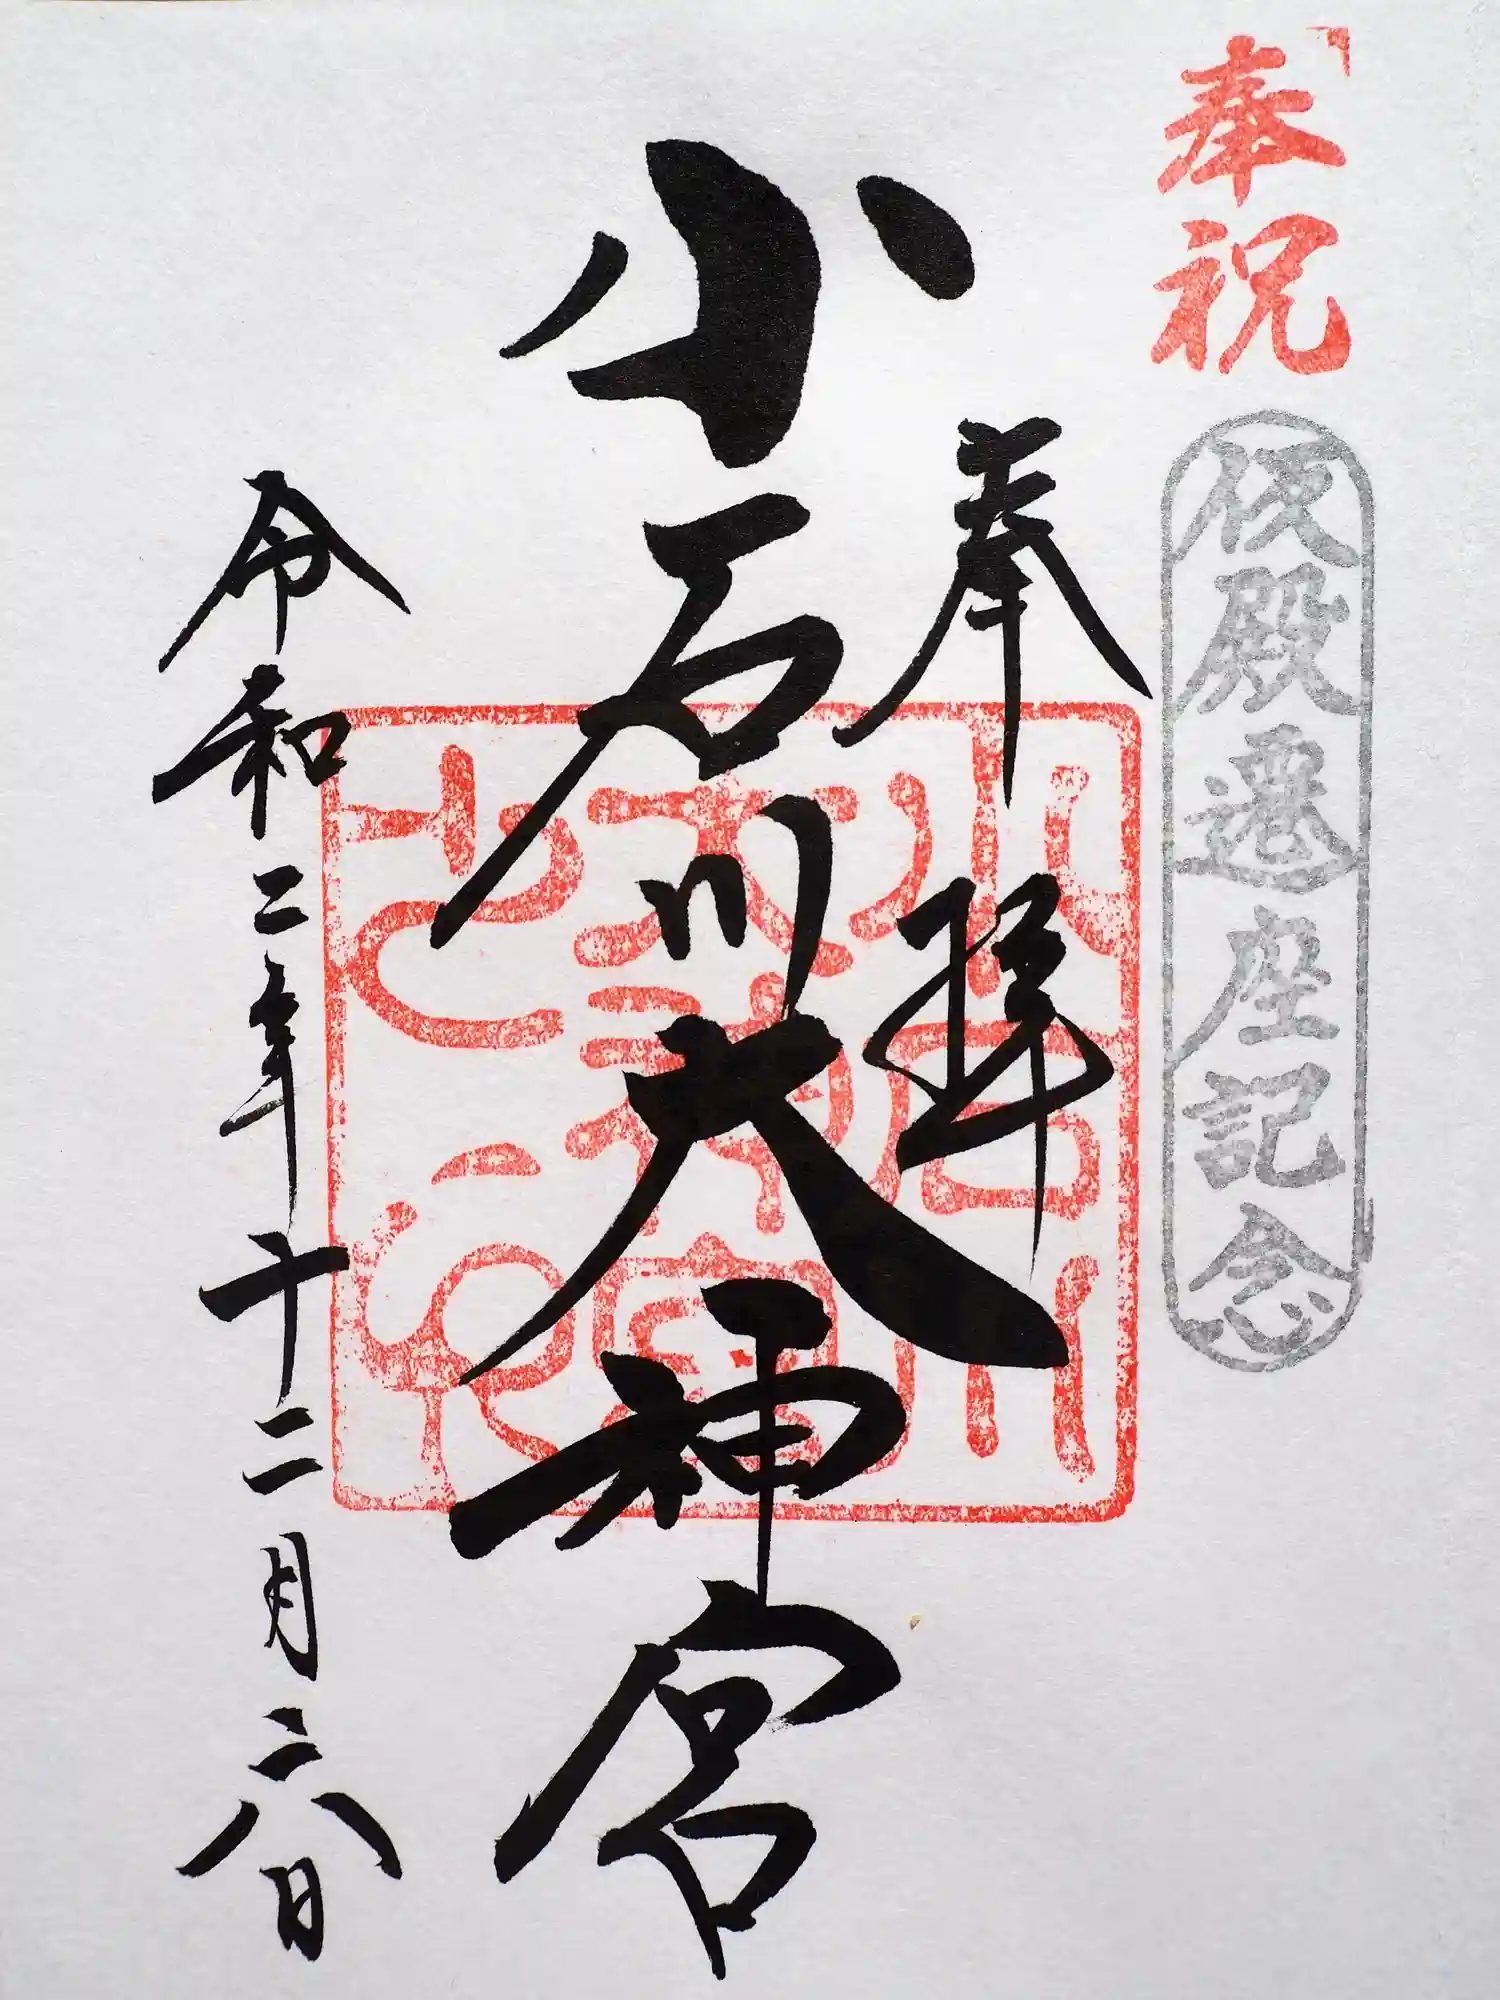 奉祝
仮殿遷座記念
奉拝
小石川大神宮
小石川
大神宮
令和二年十二月二八日